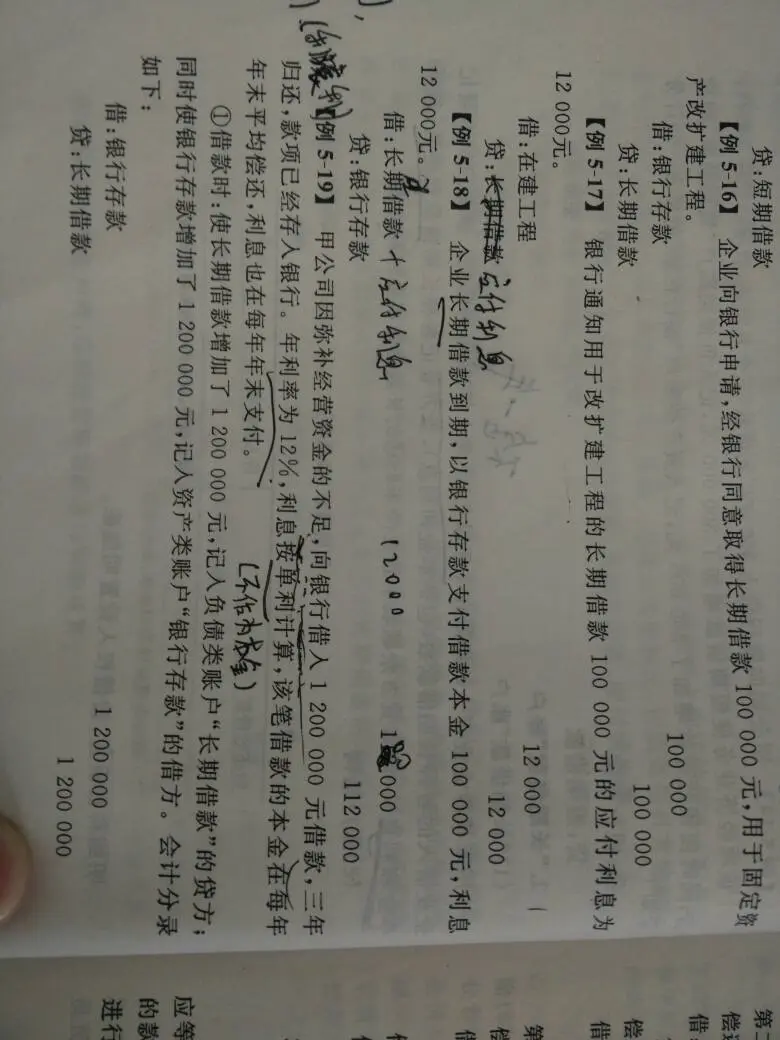 贷:短期借款
【例 5-16】 企业向银行申请,经银行同意取得长期借款 100 000 元,用于固定资
产改扩建工程。
借:银行存款 100 000
贷:长期借款 100 000
【例 5-17】 银行通知用于改扩建工程的长期借款 100 000 元的应付利息为
12 000元。
借:在建工程 12 000
贷:长期借款 应付利息 12 000
【例 5-18】 企业长期借款到期,以银行存款支付借款本金 100 000 元,利息
12 000元。
借:长期借款 十应付利息 12000 100 000
贷:银行存款 112 000
【例 5-19】 甲公司因弥补经营资金的不足,向银行借入 1 200 000 元借款,三年
归还,款项已经存入银行。年利率为 12%,利息按单利计算,该笔借款的本金在每年
(不作为本金)
年末平均偿还,利息也在每年年末支付。
①借款时:使长期借款增加了 1 200 000 元,记入负债类账户“长期借款”的贷方;
同时使银行存款增加了 1 200 000 元,记入资产类账户“银行存款”的借方。会计分录
如下:
借:银行存款 1 200 000
贷:长期借款 1 200 000
第二
偿
借:
第
偿
借
应等
的款
进行